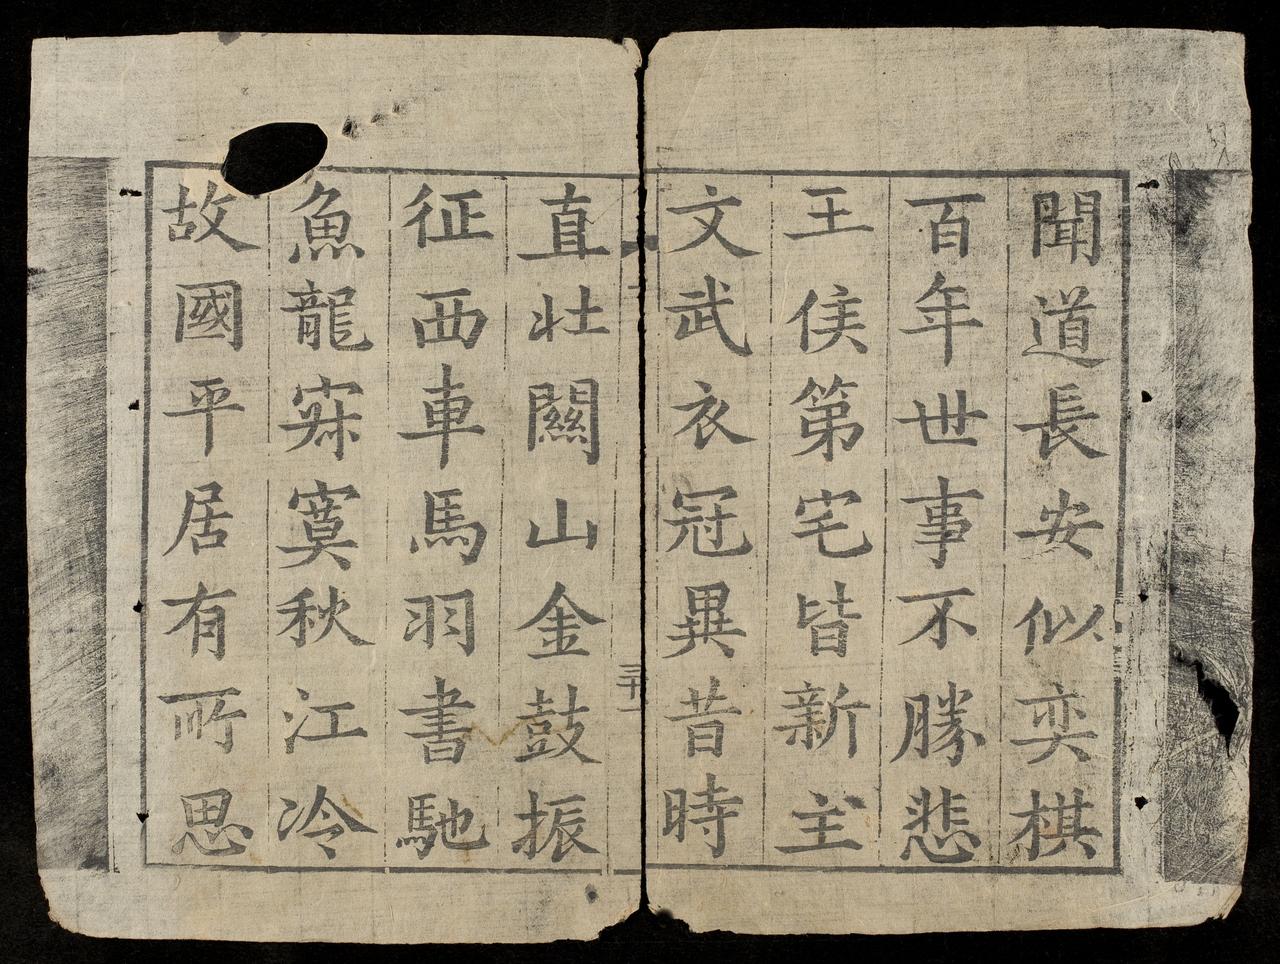 聞道長安似奕棋
百年世事不勝悲
王侯第宅皆新主
文武衣冠異昔時
三十一
直壯關山金鼓振
征西車馬羽書馳
魚龍寂寞秋江冷
故國平居有所思